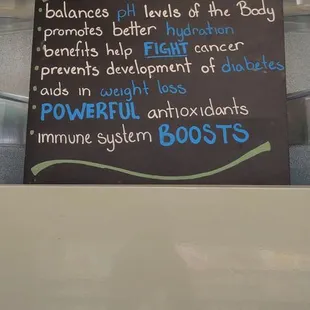 • balances pH levels of the Body
• promotes better hydration
• benefits help FIGHT cancer
• prevents development of diabetes
• aids in weight loss
• POWERFUL antioxidants
• immune system BOOSTS